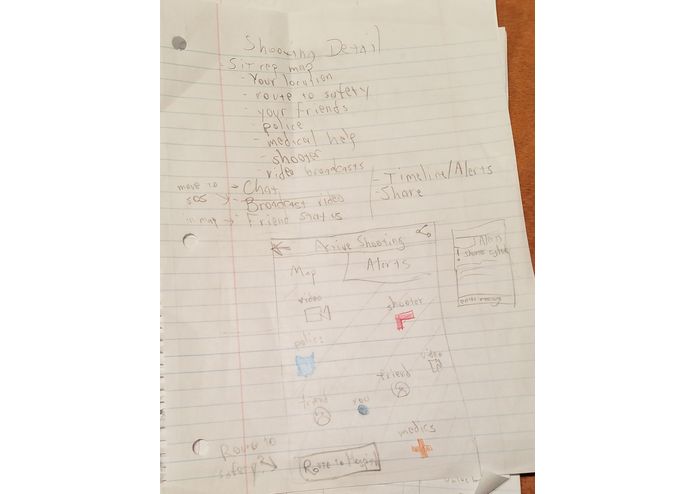 Shooting Detail
- Sitrep map
- Your location
- route to safety
- your friends
- police
- medical help
- shooter
- video broadcasts
move to SOS → - Chat
- Broadcast video
in map → - Friend status
- Timeline/Alerts
- Share
Active Shooting
Map Alerts
video
shooter
police
video
friend
friend
you
medics
Route to safety?
Route to
Alerts
! shots